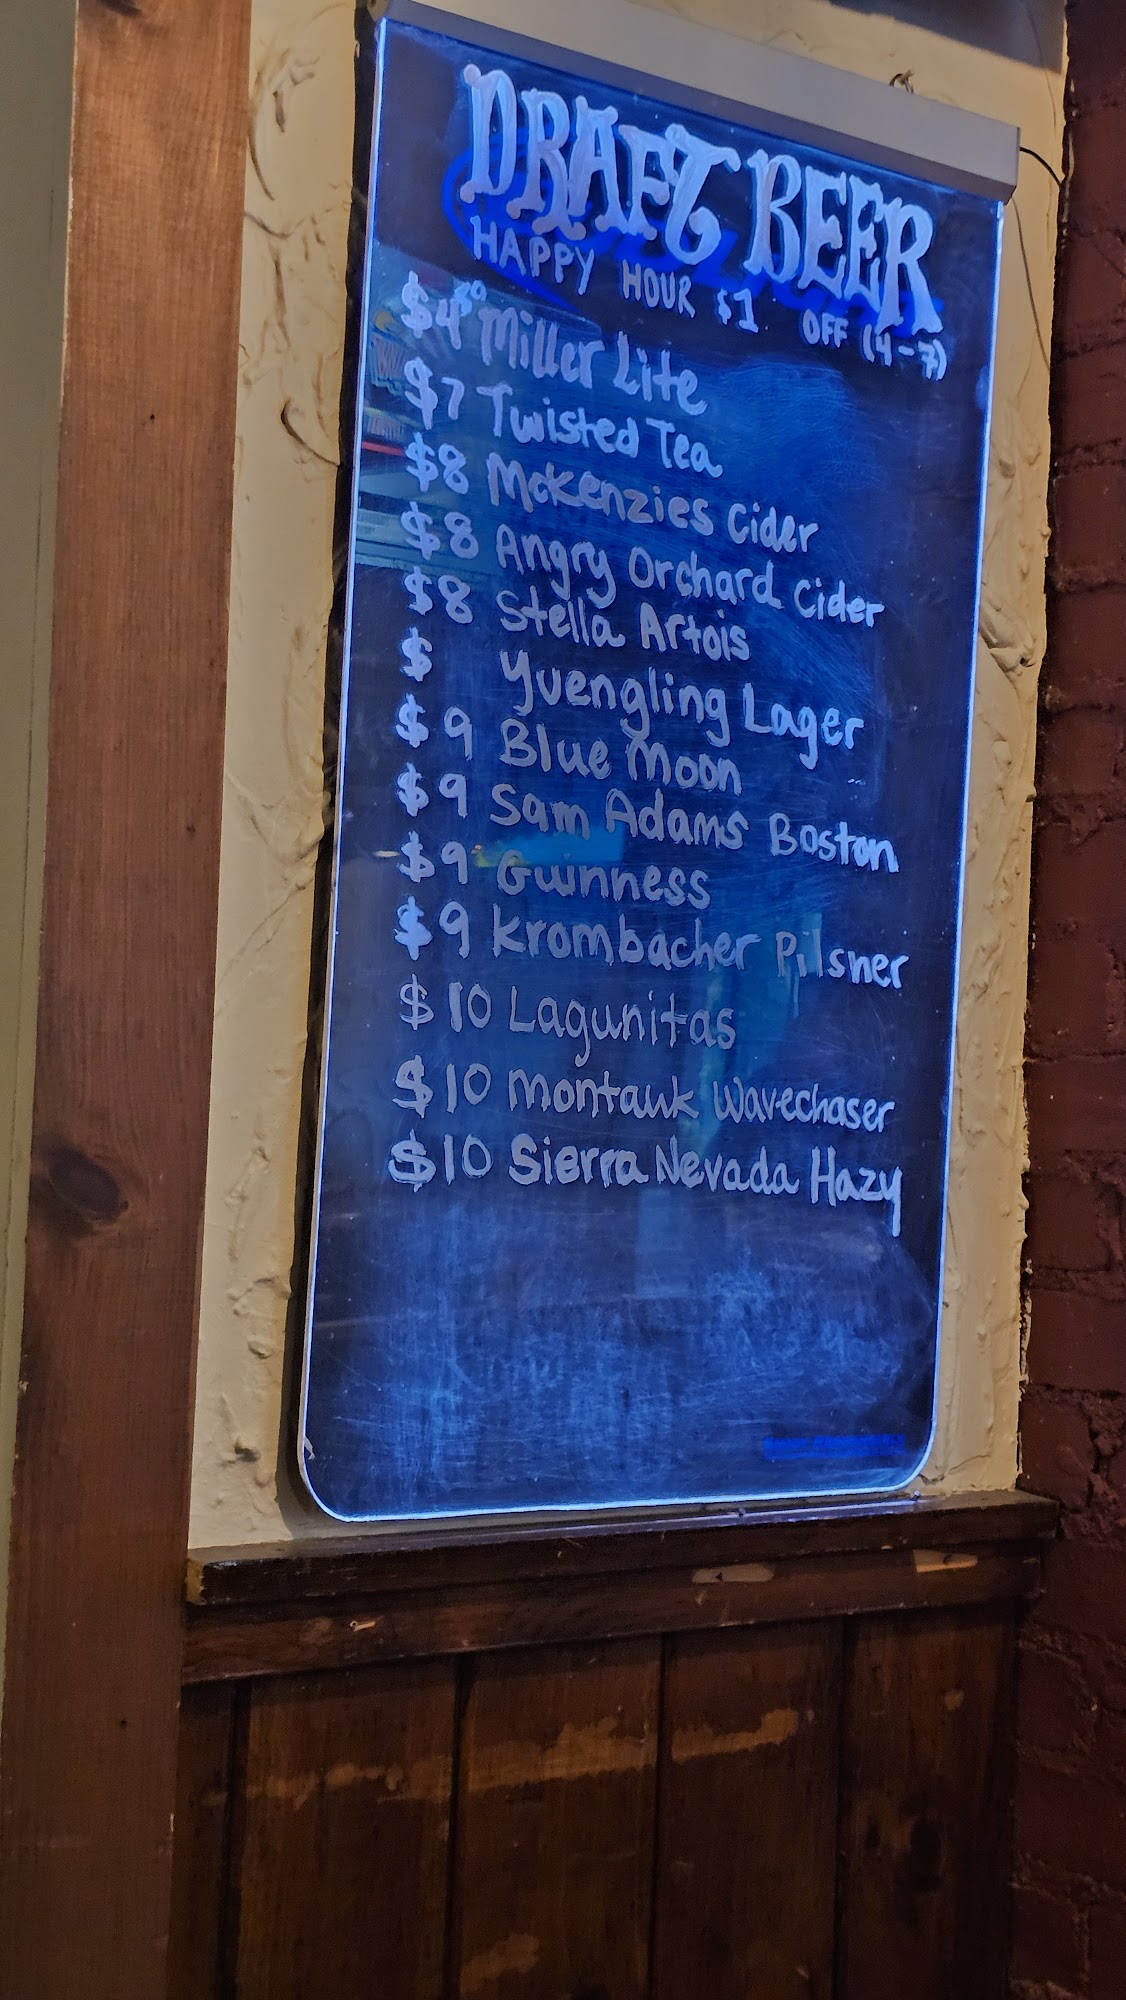 DRAFT BEER
HAPPY HOUR $1 OFF (4-7)
$4⁵⁰ Miller Lite
$7 Twisted Tea
$8 McKenzies Cider
$8 Angry Orchard Cider
$8 Stella Artois
$ Yuengling Lager
$9 Blue Moon
$9 Sam Adams Boston
$9 Guinness
$9 Krombacher Pilsner
$10 Lagunitas
$10 Montauk Wavechaser
$10 Sierra Nevada Hazy